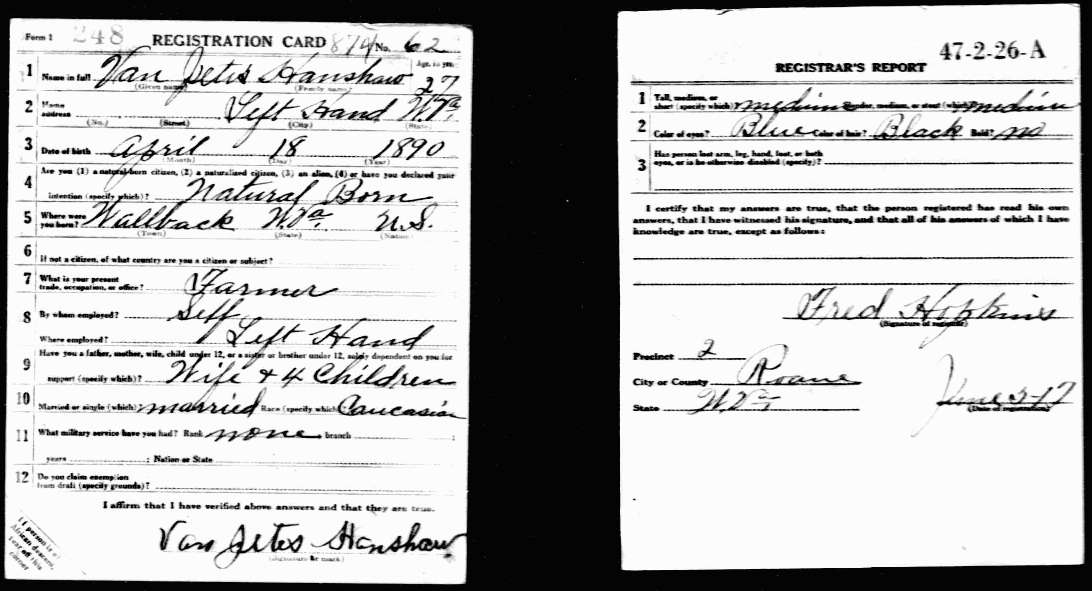 Form 1 248 REGISTRATION CARD 874 No. 62
1 Name in full Van Jetes Hanshaw Age, in yrs. 27
(Given name) (Family name)
2 Home address Left Hand W.Va
(No.) (Street) (City) (State)
3 Date of birth April 18 1890
(Month) (Day) (Year)
4 Are you (1) a natural-born citizen, (2) a naturalized citizen, (3) an alien, (4) or have you declared your
intention (specify which)? Natural Born
5 Where were you born? Wallback W.Va. U.S.
(Town) (State) (Nation)
6 If not a citizen, of what country are you a citizen or subject?
7 What is your present trade, occupation, or office? Farmer
8 By whom employed? Self
Where employed? Left Hand
9 Have you a father, mother, wife, child under 12, or a sister or brother under 12, solely dependent on you for
support (specify which)? Wife + 4 Children
10 Married or single (which)? married Race (specify which)? Caucasian
11 What military service have you had? Rank none branch ;
years ; Nation or State
12 Do you claim exemption
from draft (specify grounds)?
I affirm that I have verified above answers and that they are true.
Van Jetes Hanshaw
(Signature or mark)
If person is of
African descent,
tear off this
corner
47-2-26-A
REGISTRAR'S REPORT
1 Tall, medium, or short (specify which)? medium Slender, medium, or stout (which)? medium
2 Color of eyes? Blue Color of hair? Black Bald? no
3 Has person lost arm, leg, hand, foot, or both
eyes, or is he otherwise disabled (specify)?
I certify that my answers are true, that the person registered has read his own
answers, that I have witnessed his signature, and that all of his answers of which I have
knowledge are true, except as follows:
Fred Hopkins
(Signature of registrar)
Precinct 2
City or County Roane
State W.Va. June 5-17
(Date of registration)